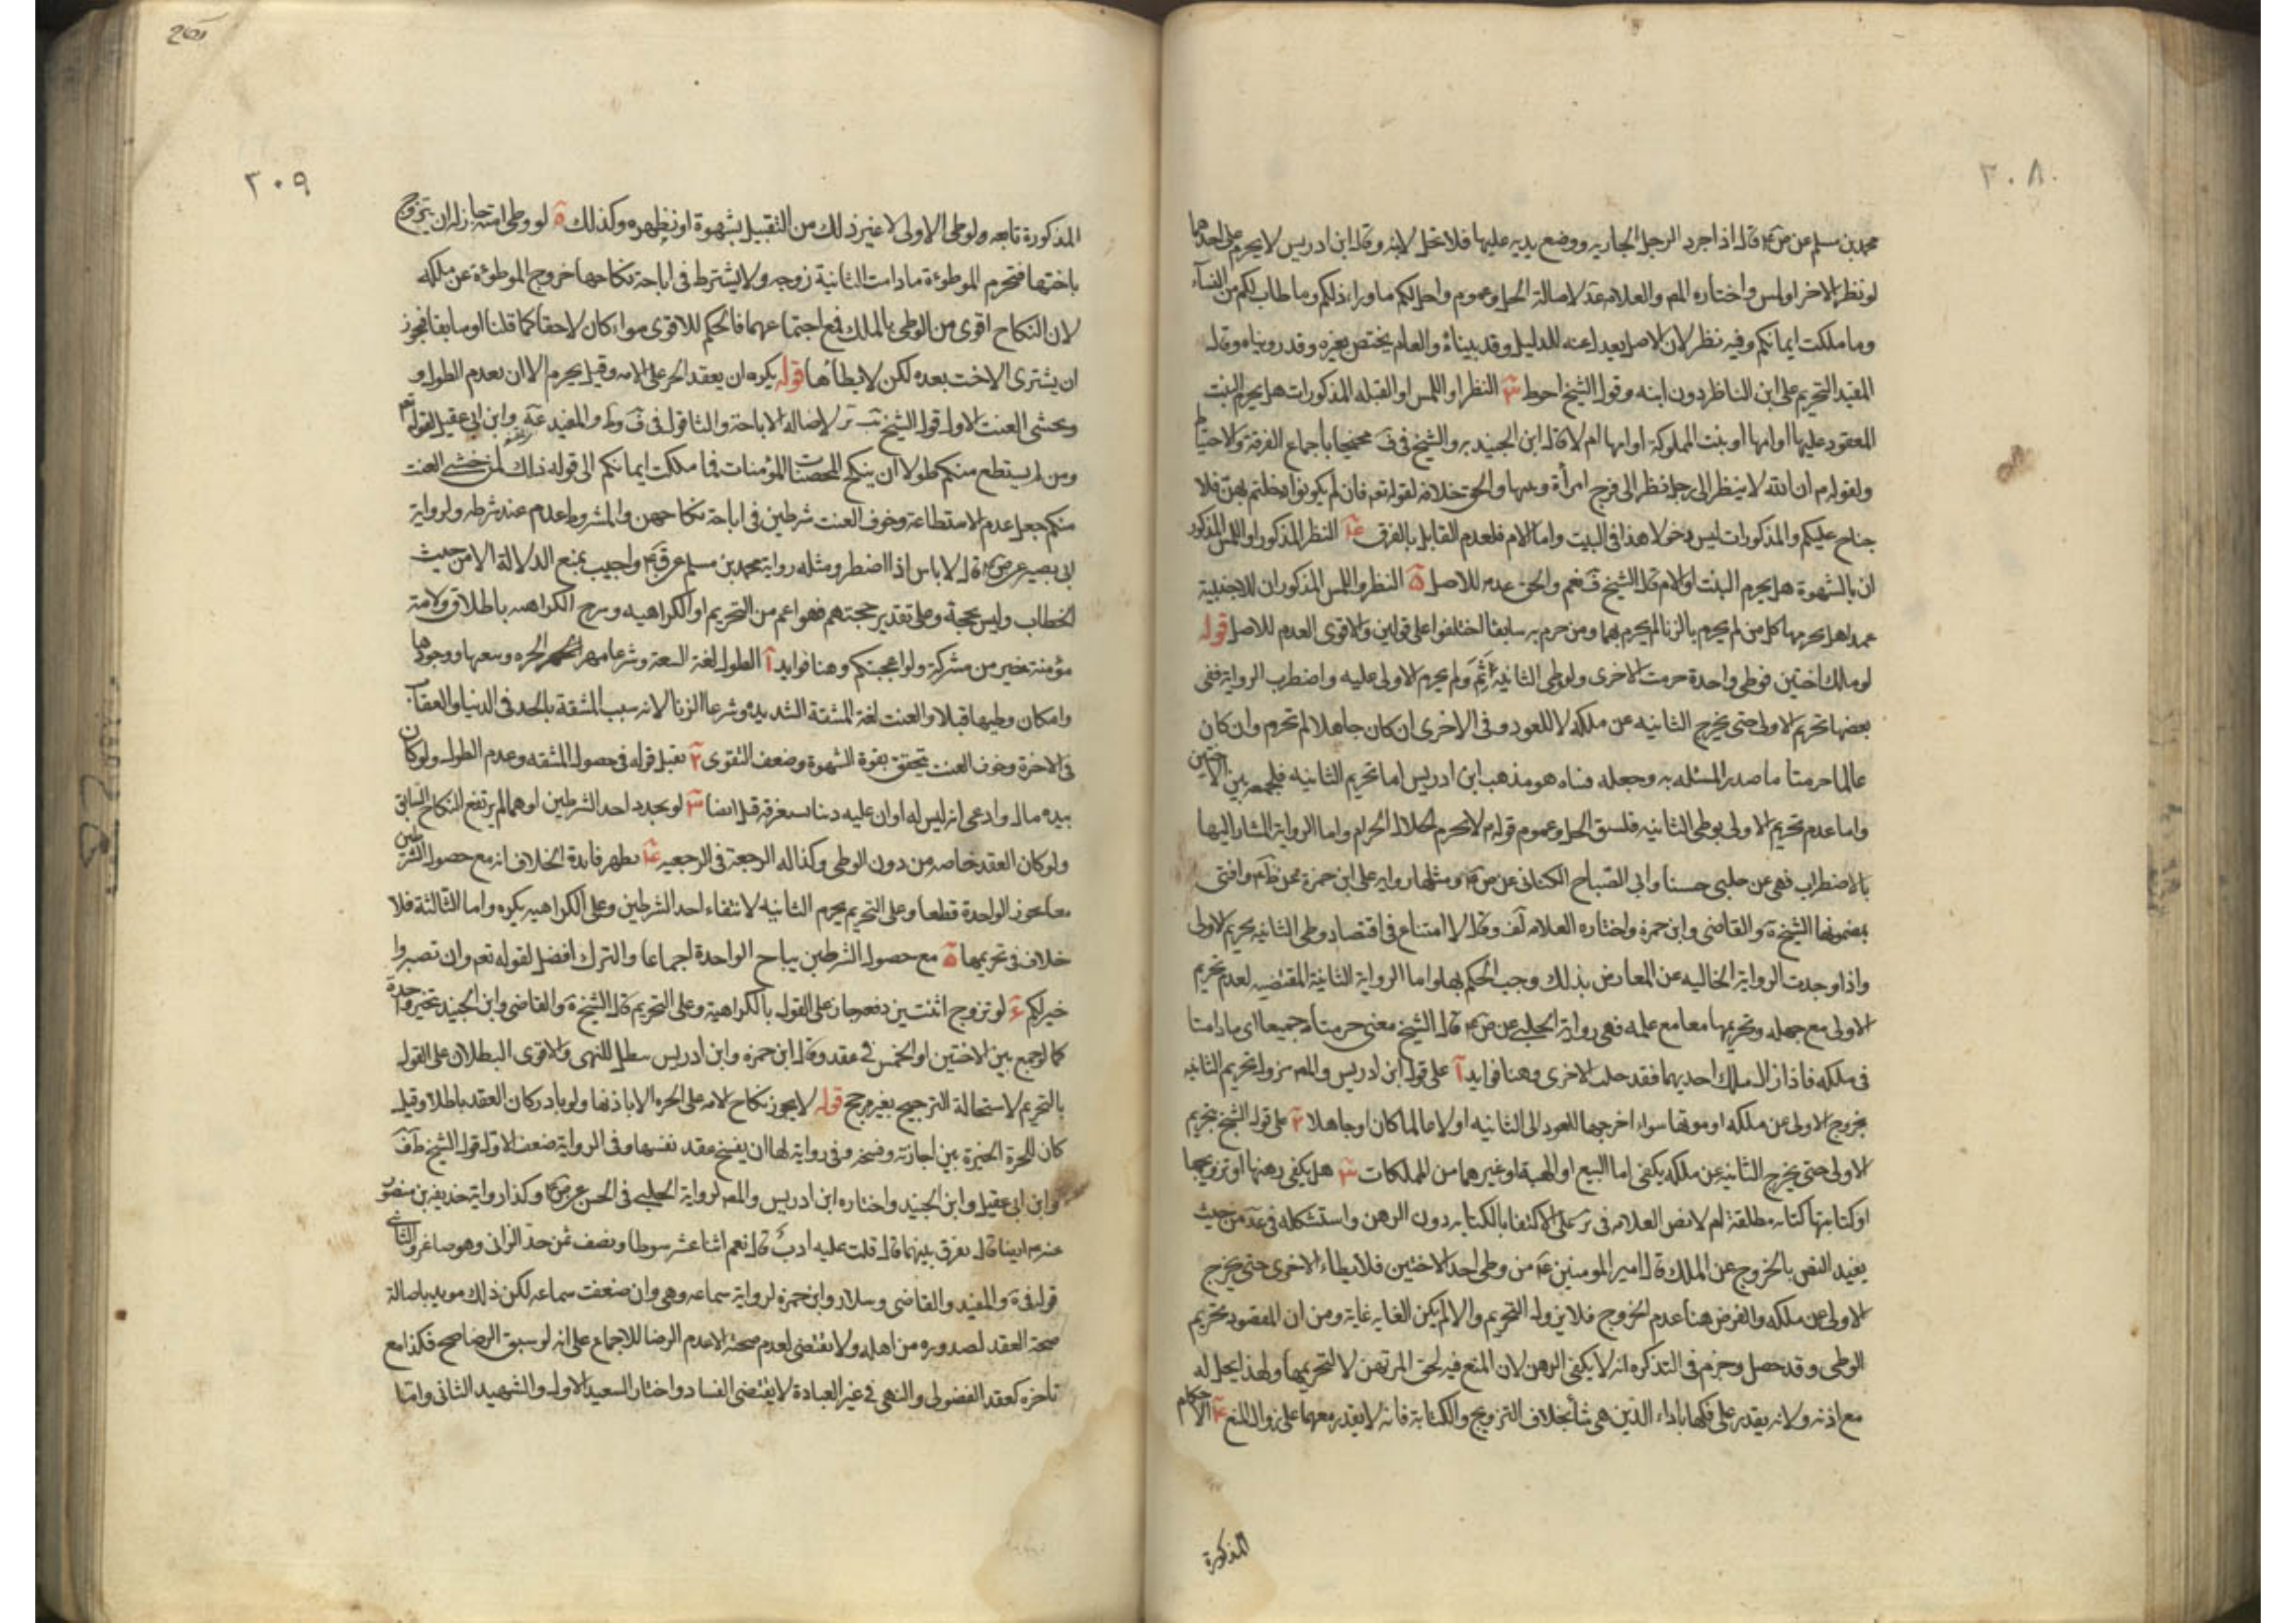 ٢٠٨
محمد بن مسلم عن ص ع قال اذا جرد الرجل الجاريه ووضع يديه عليها فلا تحل لابنه وقال ابن ادريس لا يحرم على احدهما
لو نظر الاخر او لمس واختاره المص والعلامه عد لاصالة الحل وعموم واحل لكم ما وراء ذلكم وما طاب لكم من النسآء
وما ملكت ايمانكم وفيه نظر لان الاصل يعدل عنه للدليل وقد بيناه والعام يختص بغيره وقد رويناه وقال
المفيد التحريم على ابن الناظر دون ابنه وقول الشيخ احوط ٣ النظر او اللمس او القبله المذكورات هل يحرم البنت
المعقود عليها او امها او بنت المملوكة او امها ام لا قال ابن الجنيد به والشيخ في ف محتجا باجماع الفرقة والاحتياط
ولقوله م ان الله لا ينظر الى رجل نظر الى فرج امرأة وبنها والحق خلافه لقوله تعم فان لم يكونوا دخلتم بهن فلا
جناح عليكم والمذكورات ليس دخولا هذا في البنت واما الام فلعدم القايل بالفرق ٤ النظر المذكور او اللمس المذكور
ان بالشهوة هل يحرم البنت او الام قال الشيخ ف نعم والحق عدمه للاصل ٥ النظر واللمس المذكوران للاجنبية
عمدا هل يحرمها كل من لم يحرم بالزنا لم يحرم بهما ومن حرم به سابقا اختلفوا على قولين والاقوى العدم للاصل قوله
لو ملك اختين فوطى واحدة حرمت الاخرى ولو وطى الثانية اثم ولم يحرم الاولى عليه واضطرب الرواية ففى
بعضها تحريم الاولى حتى يخرج الثانيه عن ملكه لا للعود وفى الاخرى ان كان جاهلا لم تحرم وان كان
عالما حرمتا ما صدر المسئله به وجعله فتاه هو مذهب ابن ادريس اما تحريم الثانيه فلجمعه بين الاختين
واما عدم تحريم الاولى بوطى الثانيه فلسبق الحل وعموم قوله م لا يحرم الحلال الحرام واما الرواية المشار اليها
بالاضطراب فهى عن حلبى حسنا وابى الصباح الكنانى عن ص ع ومثلها رواية على ابن حمزة عن ظم ع وافتى
بمضمونها الشيخ ة والقاضى وابن حمزة واختاره العلامه لف وقال لا امتناع فى اقتضاء وطى الثانيه تحريم الاولى
واذا وجدت الرواية الخاليه عن المعارض بذلك وجب الحكم بها واما الرواية الثانية المقتضيه لعدم تحريم
الاولى مع جهله وتحريمها معا مع علمه فهى رواية الحلبى عن ص ع قال الشيخ معنى حرمتا جميعا اى ما دامتا
فى ملكه فاذا زال ملك احديهما فقد حلت الاخرى وهنا فوايد آ على قول ابن ادريس والمص يزول تحريم الثانيه
بخروج الاولى عن ملكه او موتها سواء اخرجها للعود الى الثانيه او لا عالما كان او جاهلا ٢ على قول الشيخ بتحريم
الاولى حتى يخرج الثانيه عن ملكه يكفى اما البيع او الهبة او غيرهما من المملكات ٣ هل يكفى رهنها او تزويجها
او كتابتها كتابه مطلقة ام لا نص العلامه فى ير على الاكتفا بالكتابه دون الرهن واستشكله فى عد من حيث
يفيد النص بالخروج عن الملك قال امير المومنين ع من وطى احد الاختين فلا يطاء الاخرى حتى يخرج
الاولى عن ملكه والفرض هنا عدم الخروج فلا يزول التحريم والا لم يكن الغايه غاية ومن ان المقصود تحريم
الوطى وقد حصل وجزم فى التذكره انه لا يكفى الرهن لان المنع فيه لحق المرتهن لا لتحريمها ولهذا يحل له
مع اذنه ولانه يقدر على فكها باداء الدين متى شاء بخلاف التزويج والكتابة فانه لا يقدر معهما على زوال المنع ٤ الاحكام
المذكورة
٢٠٩
المذكورة تابعه ولو وطى الاولى لا غير ذلك من التقبيل بشهوة او نظر وكذلك ٥ لو وطى امته جاز له ان يتزوج
باختها فتحرم الموطوءة ما دامت الثانية زوجه ولا يشترط فى اباحة نكاحها خروج الموطوءة عن ملكه
لان النكاح اقوى من الوطى بالملك فمع اجتماعهما فالحكم للاقوى سواء كان لاحقا كما قلنا او سابقا فيجوز
ان يشترى الاخت بعده لكن لا يطأها قوله يكره ان يعقد الحر على الامه وقيل يحرم الا ان يعدم الطول و
يخشى العنت الاول قول الشيخ لاصاله الاباحة والثا قوله فى ف وط والمفيد وابن ابى عقيل لقوله تعم
ومن لم يستطع منكم طولا ان ينكح المحصنات المؤمنات فما ملكت ايمانكم الى قوله ذلك لمن خشى العنت
منكم جعل عدم الاستطاعة وخوف العنت شرطين فى اباحة نكاحهن والمشروط عدم عند شرطه ولرواية
ابى بصير عن ص ع قال لا باس اذا اضطر ومثله رواية محمد بن مسلم عن ق ع واجيب بمنع الدلالة الا من حيث
الخطاب وليس بحجة وعلى تقدير حجتهم فهو اعم من التحريم او الكراهيه ورجح الكراهه باطلاق ولامة
مؤمنة خير من مشركة ولو اعجبتكم وهنا فوايد آ الطول لغة السعة وشرعا مهر الحره وسعها ووجودها
وامكان وطيها قبلا والعنت لغة المشقة الشديدة وشرعا الزنا لانه سبب المشقة بالحد فى الدنيا والعقاب
فى الاخرة وخوف العنت يتحقق بقوة الشهوة وضعف التقوى ٢ يقبل قوله فى حصول المشقه وعدم الطول ولو كان
بيده مال وادعى انه ليس له او ان عليه دينا يستغرقه قبل ايضا ٣ لو تجدد احد الشرطين او هما لم يرتفع النكاح السابق
ولو كان العقد خاصه من دون الوطى وكذا له الرجعة فى الرجعيه ٤ يظهر فايدة الخلاف انه مع حصول الشرطين
معا يجوز الواحدة قطعا وعلى التحريم يحرم الثانيه لانتفاء احد الشرطين وعلى الكراهيه يكره واما الثالثة فلا
خلاف فى تحريمها ٥ مع حصول الشرطين يباح الواحدة اجماعا والترك افضل لقوله تعم وان تصبروا
خير لكم ٦ لو تزوج اثنتين دفعه جاز على القول بالكراهية وعلى التحريم قال الشيخ ة والقاضى وابن الجنيد تخير واحدة
كما لو جمع بين الاختين او الخمس فى عقد وقال ابن حمزه وابن ادريس يبطل للنهى والاقوى البطلان على القول
بالتحريم لاستحالة الترجيح بغير مرجح قوله لا يجوز نكاح الامه على الحره الا باذنها ولو بادر كان العقد باطلا وقيل
كان للحرة الخيرة بين اجازته وفسخه وفى رواية لها ان يفسخ عقد نفسها وفى الرواية ضعف الاول قول الشيخ ط ف
وابن ابى عقيل وابن الجنيد واختاره ابن ادريس والمص لرواية الحلبى فى الحسن عن ص ع وكذا رواية حذيفه بن منصور
عنه ع ايضا قال يفرق بينهما قال قلت عليه ادب قال نعم اثنا عشر سوطا ونصف ثمن حد الزانى وهو صاغر والثانى
قوله فى ة والمفيد والقاضى وسلار وابن حمزه لرواية سماعه وهى وان ضعفت سماعه لكن ذلك مويد باصالة
صحة العقد لصدوره من اهله ولا مقتضى لعدم صحته الا عدم الرضا للاجماع على انه لو سبق الرضا صح فكذا مع
تاخره كعقد الفضولى والنهى فى غير العبادة لا يقتضى الفساد واختار السعيد الاول والشهيد الثانى واما